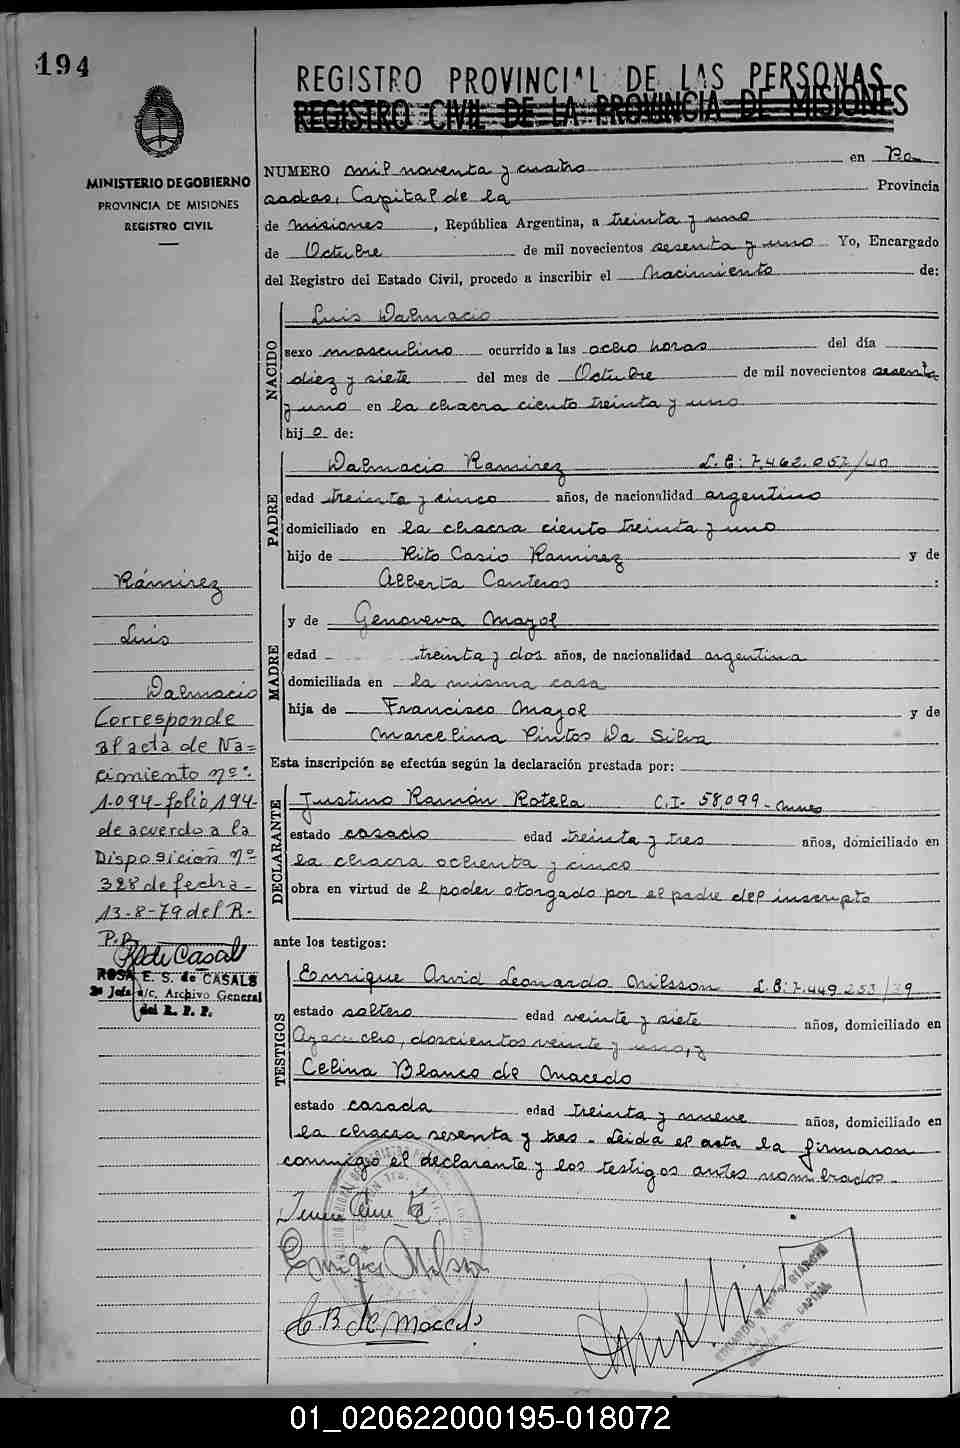 194
MINISTERIO DE GOBIERNO
PROVINCIA DE MISIONES
REGISTRO CIVIL
REGISTRO PROVINCIAL DE LAS PERSONAS
REGISTRO CIVIL DE LA PROVINCIA DE MISIONES
NUMERO mil noventa y cuatro en Po-
sadas, Capital de la Provincia
de Misiones, República Argentina, a treinta y uno
de Octubre de mil novecientos sesenta y uno Yo, Encargado
del Registro del Estado Civil, procedo a inscribir el Nacimiento de:
NACIDO
Luis Dalmacio
sexo masculino ocurrido a las ocho horas del día
diez y siete del mes de Octubre de mil novecientos sesenta
y uno en la chacra ciento treinta y uno
hijo de:
PADRE
Dalmacio Ramirez L.E: 7.462.057/40
edad treinta y cinco años, de nacionalidad argentino
domiciliado en la chacra ciento treinta y uno
hijo de Rito Casio Ramirez y de
Alberta Canteros :
MADRE
y de Genoveva Mazol
edad treinta y dos años, de nacionalidad argentina
domiciliada en la misma casa
hija de Francisco Mazol y de
Marcelina Pintos Da Silva
Esta inscripción se efectúa según la declaración prestada por:
DECLARANTE
Justino Ramón Rotela C.I. 58,099-Mnes
estado casado edad treinta y tres años, domiciliado en
la chacra ochenta y cinco
obra en virtud de l poder otorgado por el padre del inscripto
ante los testigos:
TESTIGOS
Enrique Arvid Leonardo Nilsson L.E: 7.449.253/39
estado soltero edad veinte y siete años, domiciliado en
Ayacucho, doscientos veinte y uno, y
Celina Blanco de Macedo
estado casada edad treinta y nueve años, domiciliado en
la chacra sesenta y tres - Leida el acta la firmaron
conmigo el declarante y los testigos antes nombrados.-
Enrique Nilsson
C B de Macedo
Rámirez
Luis
Dalmacio
Corresponde
al acta de Na=
cimiento nº:
1.094-folio 194-
de acuerdo a la
Disposición Nº
328 de fecha-
13-8-79 del R.
P.P.
R de Casals
ROSA E. S. de CASALS
2ª Jefa a/c. Archivo General
del R. P. P.
01_020622000195-018072